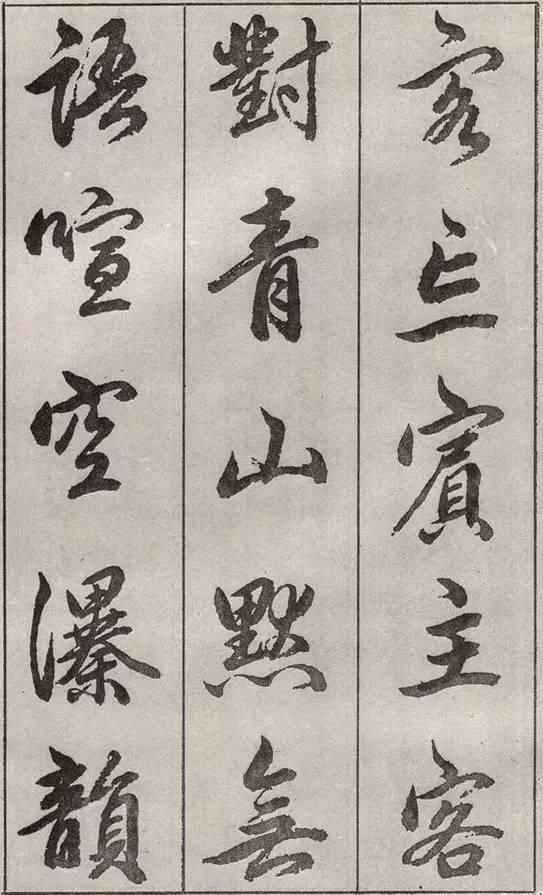 客忘賓主客
對青山默無
語喧空瀑韻